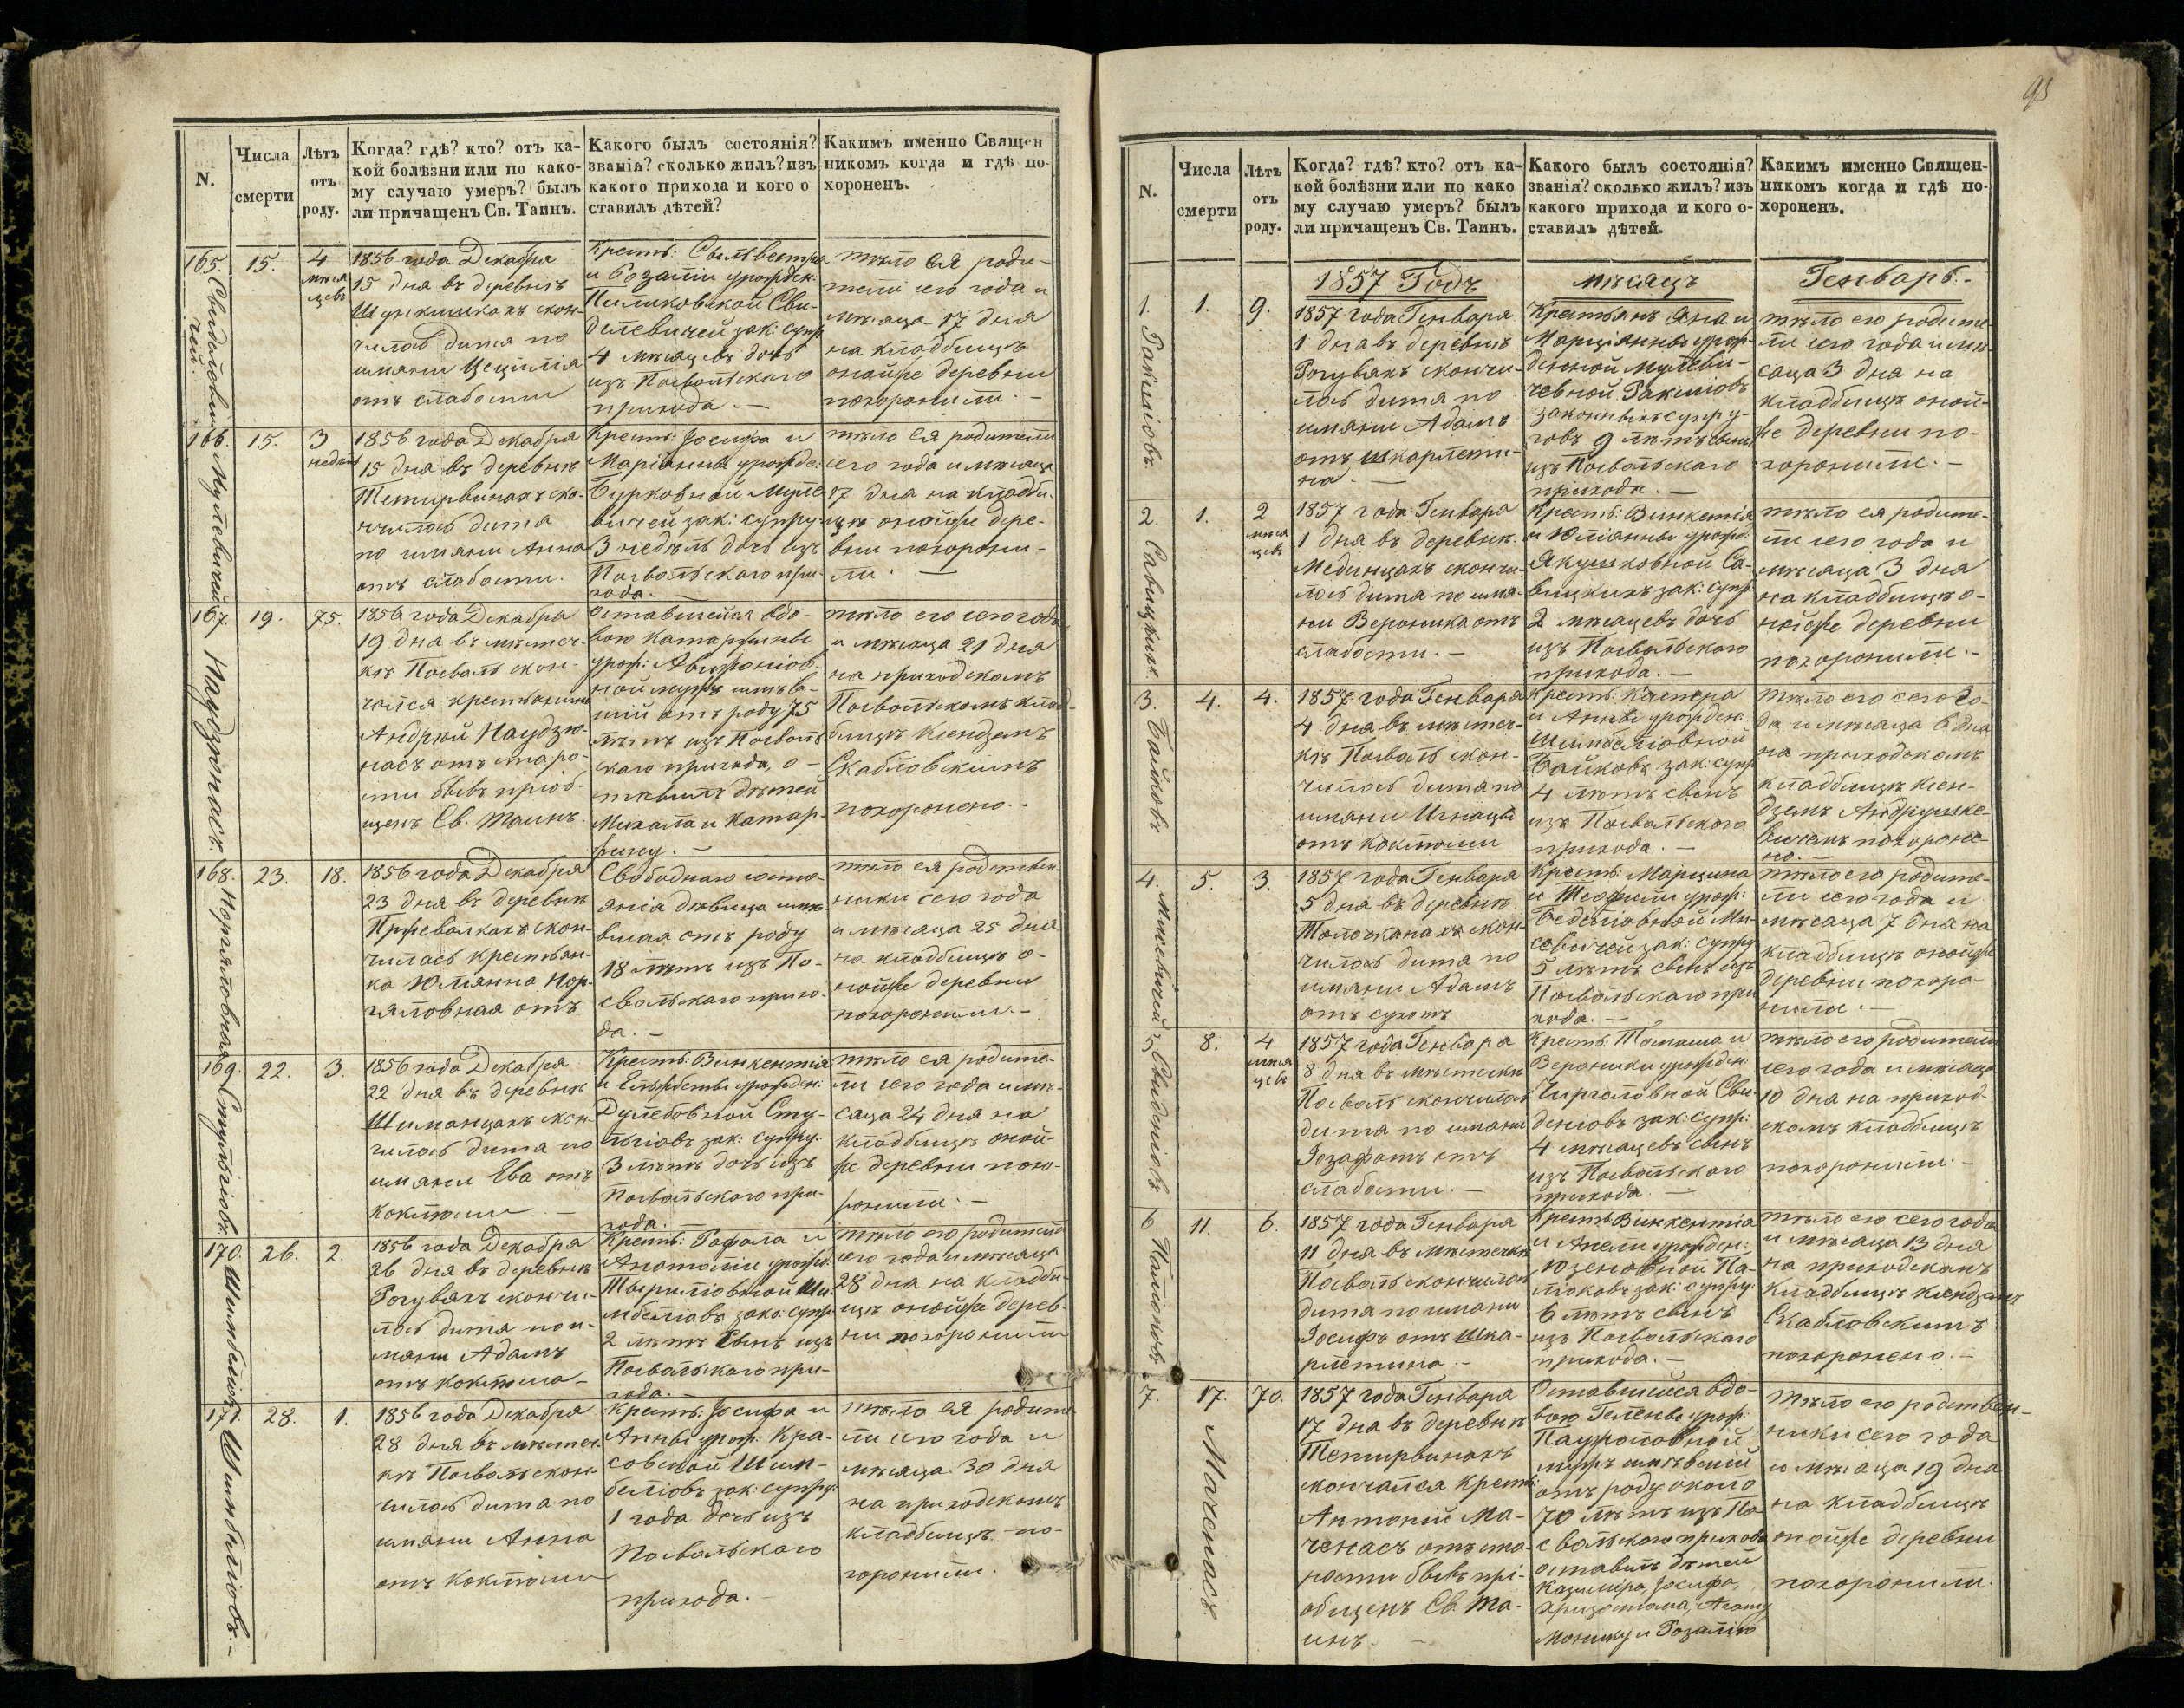 N.
Числа
смерти
Лѣтъ
отъ
роду.
Когда? гдѣ? кто? отъ ка-
кой болѣзни или по како-
му случаю умеръ? былъ
ли причащенъ Св. Таинъ.
Какого былъ состоянія?
званія? сколько жилъ? изъ
какого прихода и кого о
ставилъ дѣтей?
Какимъ именно Священ
никомъ когда и гдѣ по-
хороненъ.
165.
15.
4
мѣся
цевъ
1856 года Декабря
15 дня въ деревнѣ
скон-
чилось дитя по
имяни Цецилія
отъ слабости
Крест: Сыльвестра
и Розаліи урожден:
зак: супр
4 мѣсяцевъ дочь
изъ Посвольского
прихода. —
тѣло ея роди-
тели сего года и
мѣсяца 17 дня
на кладбищѣ
онойже деревни
похоронили. —
166. Мулевичей
15.
3
недѣл
1856 года Декабря
15 дня въ деревнѣ
Тетирвинахъ ско-
нчилось дитя
по имяни Анна
отъ слабости.
Крест: Іосифа и
Маріанны урожде:
Бурковной Муле-
вичей зак: супру:
3 недѣль дочь изъ
Посвольского при-
хода. —
тѣло ея родители
сего года и мѣсяца
17 дня на кладби-
щѣ онойже дере-
вни похорони-
ли. —
167. Наудзюнасъ.
19.
75.
1856 года Декабря
19 дня въ мѣстеч-
кѣ Посволь скон-
чался крестьянинъ
Андрей Наудзю-
насъ отъ старо-
сти бывъ пріоб-
щенъ Св. Таинъ.
Оставшейся вдо-
вою Катаржины
урож:
ной мужъ имѣв-
шій отъ роду 75
лѣтъ изъ Посволь
скаго прихода, о-
ставилъ дѣтей
Михала и Катар-
жину. —
тѣло его сего года
и мѣсяца 21 дня
на приходскомъ
Посвольскомъ клад-
бищѣ Ксендземъ
Скабловскимъ
похоронено. —
168.
23.
18.
1856 года Декабря
23 дня въ деревнѣ
Пржевалкахъ скон-
чилась крестьян-
ка Юліянна Нор-
гяловная отъ
Свободнаго состо-
янія дѣвица имѣ-
вшая отъ роду
18 лѣтъ изъ По-
свольскаго прихо-
да. —
тѣло ея родствен-
ники сего года
и мѣсяца 25 дня
на кладбищѣ о-
нойже деревни
похоронили. —
169.
22.
3.
1856 года Декабря
22 дня въ деревнѣ
Шиманцахъ скон-
чилось дитя по
имяни Ева отъ
коклюши —
Крест: Винкентія
и Ельжбеты урожден:
Дулебовной Сту-
зак: супру:
3 лѣтъ дочь изъ
Посвольского при-
хода. —
тѣло ея родите-
ли сего года и мѣ-
сяца 24 дня на
кладбищѣ оной-
же деревни похо-
ронили. —
170. Шимбеліовъ
26.
2.
1856 года Декабря
26 дня въ деревнѣ
Рогувяхъ скончи-
лось дитя по и-
мяни Адамъ
отъ коклюша —
Крест: Рафала и
Анатоліи урожд:
Ши-
мбеліовъ зако: супр
2 лѣтъ сынъ изъ
Посвольскаго при-
хода. —
тѣло его родители
сего года и мѣсяца
28 дня на кладби-
щѣ онойже дерев-
ни похоронили
171. Шимбеліовъ. —
28.
1.
1856 года Декабря
28 дня въ мѣстеч-
кѣ Посволь скон-
чилось дитя по
имяни Анна
отъ коклюши
Крест: Іосифа и
Анны урож: Кра-
совской Шим-
беліовъ зак: супру:
1 года дочь изъ
Посвольскаго
прихода. —
тѣло ея родите
ли сего года и
мѣсяца 30 дня
на приходскомъ
кладбищѣ по-
хоронили.
93
N.
Числа
смерти
Лѣтъ
отъ
роду.
Когда? гдѣ? кто? отъ ка-
кой болѣзни или по како
му случаю умеръ? былъ
ли причащенъ Св. Таинъ.
Какого былъ состоянія?
званія? сколько жилъ? изъ
какого прихода и кого о-
ставилъ дѣтей.
Какимъ именно Священ-
никомъ когда и гдѣ по-
хороненъ.
1857 Годъ
мѣсяцъ
Генварь. —
1. Ракшіовъ
1.
9.
1857 года Генваря
1 дня въ деревнѣ
Рогувяхъ скончи-
лось дитя по
имяни Адамъ
отъ шкарлети-
на. —
Крестьянъ Яна и
Марціянны урож-
денной Мулеви-
чевной Ракшіовъ
законныхъ супру-
говъ 9 лѣтъ сынъ
изъ Посвольскаго
прихода. —
тѣло его родите-
ли сего года и мѣ-
сяца 3 дня на
кладбищѣ оной-
же деревни по-
хоронили. —
2. Савицкихъ.
1.
2
мѣся
цевъ
1857 года Генваря
1 дня въ деревнѣ
Мединцахъ скончи-
лось дитя по имя-
ни Вероника отъ
слабости. —
Крест: Винкентія
и Юліянны урож:
Якушковной Са-
вицкихъ зак: супр:
2 мѣсяцевъ дочь
изъ Посвольскаго
прихода. —
тѣло ея родите-
ли сего года и
мѣсяца 3 дня
на кладбищѣ о-
нойже деревни
похоронили. —
3. Байковъ
4.
4.
1857 года Генваря
4 дня въ мѣстеч-
кѣ Посволь скон-
чилось дитя по
имяни Игнацы
отъ коклюши
Крест: Каспера
и Анны урожден:
Шимбеліовной
Байковъ зак: супр
4 лѣтъ сынъ
изъ Посвольскаго
прихода. —
тѣло его сего го-
да и мѣсяца 6 дня
на приходскомъ
кладбищѣ Ксен-
дземъ Андрушке-
вичемъ похороне-
но. —
4. Мисевичей
5.
3.
1857 года Генваря
5 дня въ деревнѣ
Толочканахъ скон-
чилось дитя по
имяни Адамъ
отъ сухотъ
Крест: Марцина
и Теофили урож:
Ми-
севичей зак: супру
5 лѣтъ сынъ изъ
Посвольскаго при
хода. —
тѣло его родите-
ли сего года и
мѣсяца 7 дня на
кладбищѣ онойже
деревни похоро-
нили. —
5. Свиденіовъ
8.
4
мѣся
цевъ
1857 года Генваря
8 дня въ мѣстечкѣ
Посволь скончилось
дитя по имяни
Іозафатъ отъ
слабости. —
Крест: Томаша и
Вероники урожден:
Сви-
деніовъ зак: супр:
4 мѣсяцевъ сынъ
изъ Посвольскаго
прихода. —
тѣло его родители
сего года и мѣсяца
10 дня на приход-
скомъ кладбищѣ
похоронили. —
6. Паліоковъ
11.
6.
1857 года Генваря
11 дня въ мѣстечкѣ
Посволь скончилось
дитя по имяни
Іосифъ отъ шка-
рлетина. —
Крест: Винкентія
и Анели урожден:
Юзеновной Па-
ліоковъ зак: супру:
6 лѣтъ сынъ
изъ Посвольскаго
прихода. —
тѣло его сего года
и мѣсяца 13 дня
на приходскомъ
кладбищѣ Ксендземъ
Скабловскимъ
похоронено. —
7. Маченасъ.
17.
70.
1857 года Генваря
17 дня въ деревнѣ
Тетирвинахъ
скончался Крест:
Антоній Ма-
ченасъ отъ ста-
рости бывъ прі-
общенъ Св. Та-
инъ. —
Оставшейся вдо-
вою Гелены урож:
мужъ имѣвшій
отъ роду около
70 лѣтъ изъ По
свольскаго прихода
оставилъ дѣтей
Казиміра, Іосифа,
Хризостома, Агату
Монику и Розалію
тѣло его родствен-
ники сего года
и мѣсяца 19 дня
на кладбищѣ
онойже деревни
похоронили.